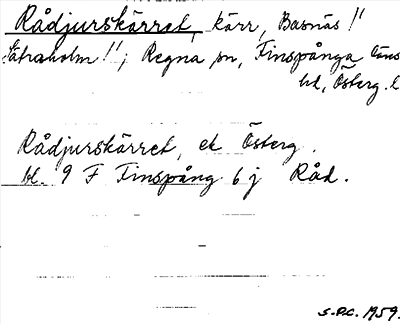 Rådjurskärret, kärr, Basnäs!!
Sätraholm!!; Regna sn, Finspånga läns
hd, Österg. l
Rådjurskärret, ek Österg.
bl. 9 F Finspång 6 j Råd.
S.P.C. 1959.